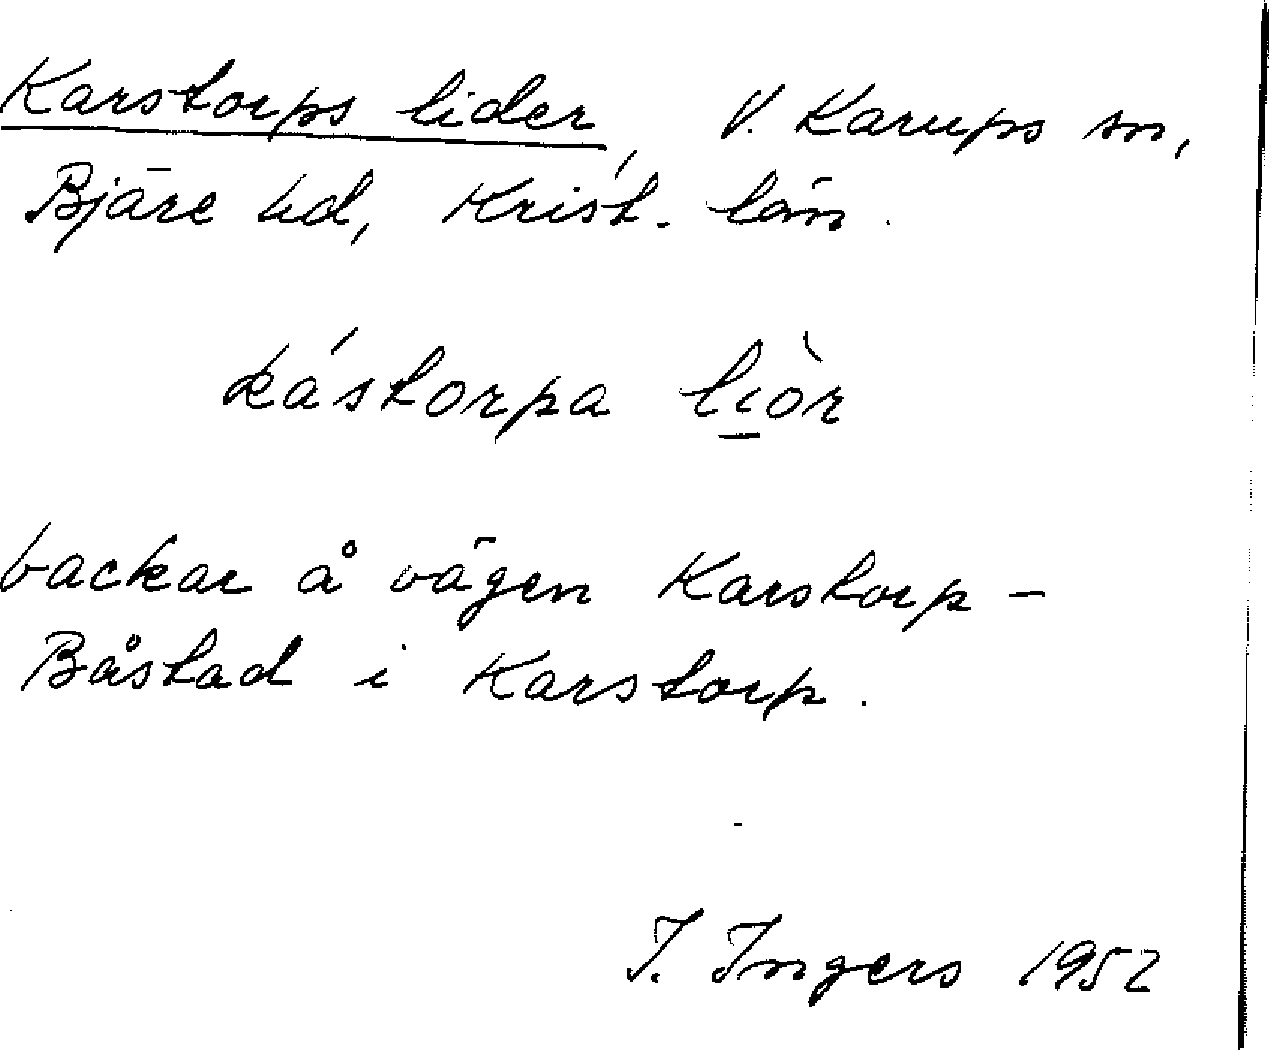 Karstorps lider, V. Karups sn,
Bjäre hd, Krist. län.
kástorpa li̱òr
backar å vägen Karstorp -
Båstad i Karstorp.
I. Ingers 1952